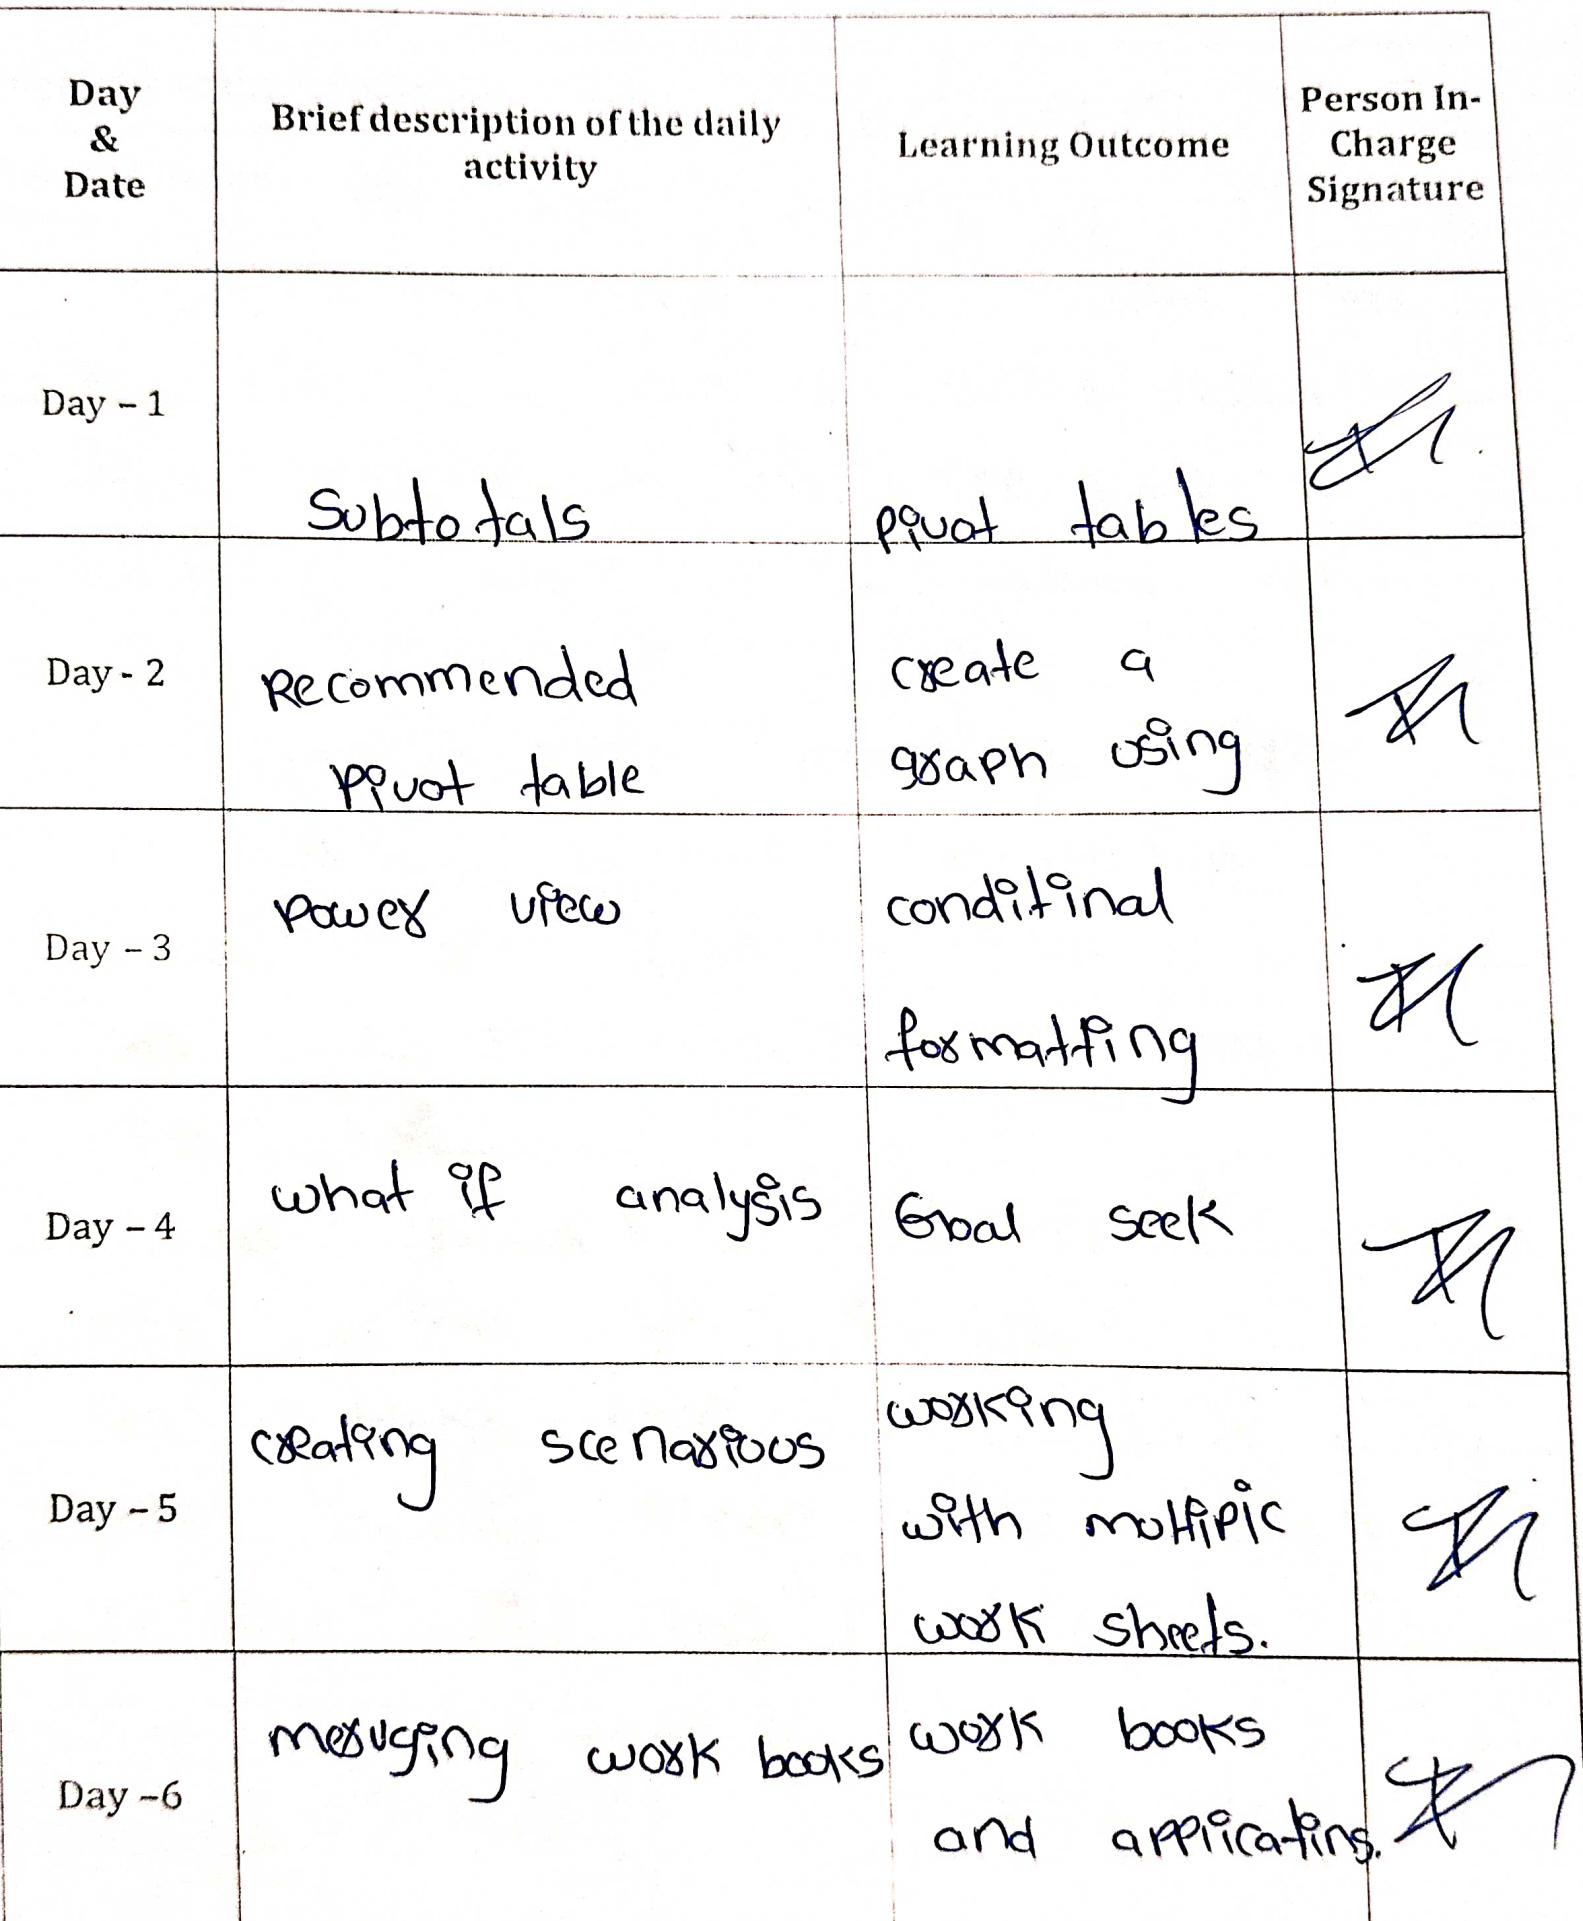 Day
&
Date
Brief description of the daily
activity
Learning Outcome
Person In-
Charge
Signature
Day – 1
Subtotals
pivot tables
Day - 2
Recommended
pivot table
create a
graph using
Day – 3
power view
conditinal
formatting
Day – 4
what if analysis
Goal seek
Day – 5
creating scenarious
working
with multiple
work sheets.
Day –6
meruging work books
work books
and applicatins.